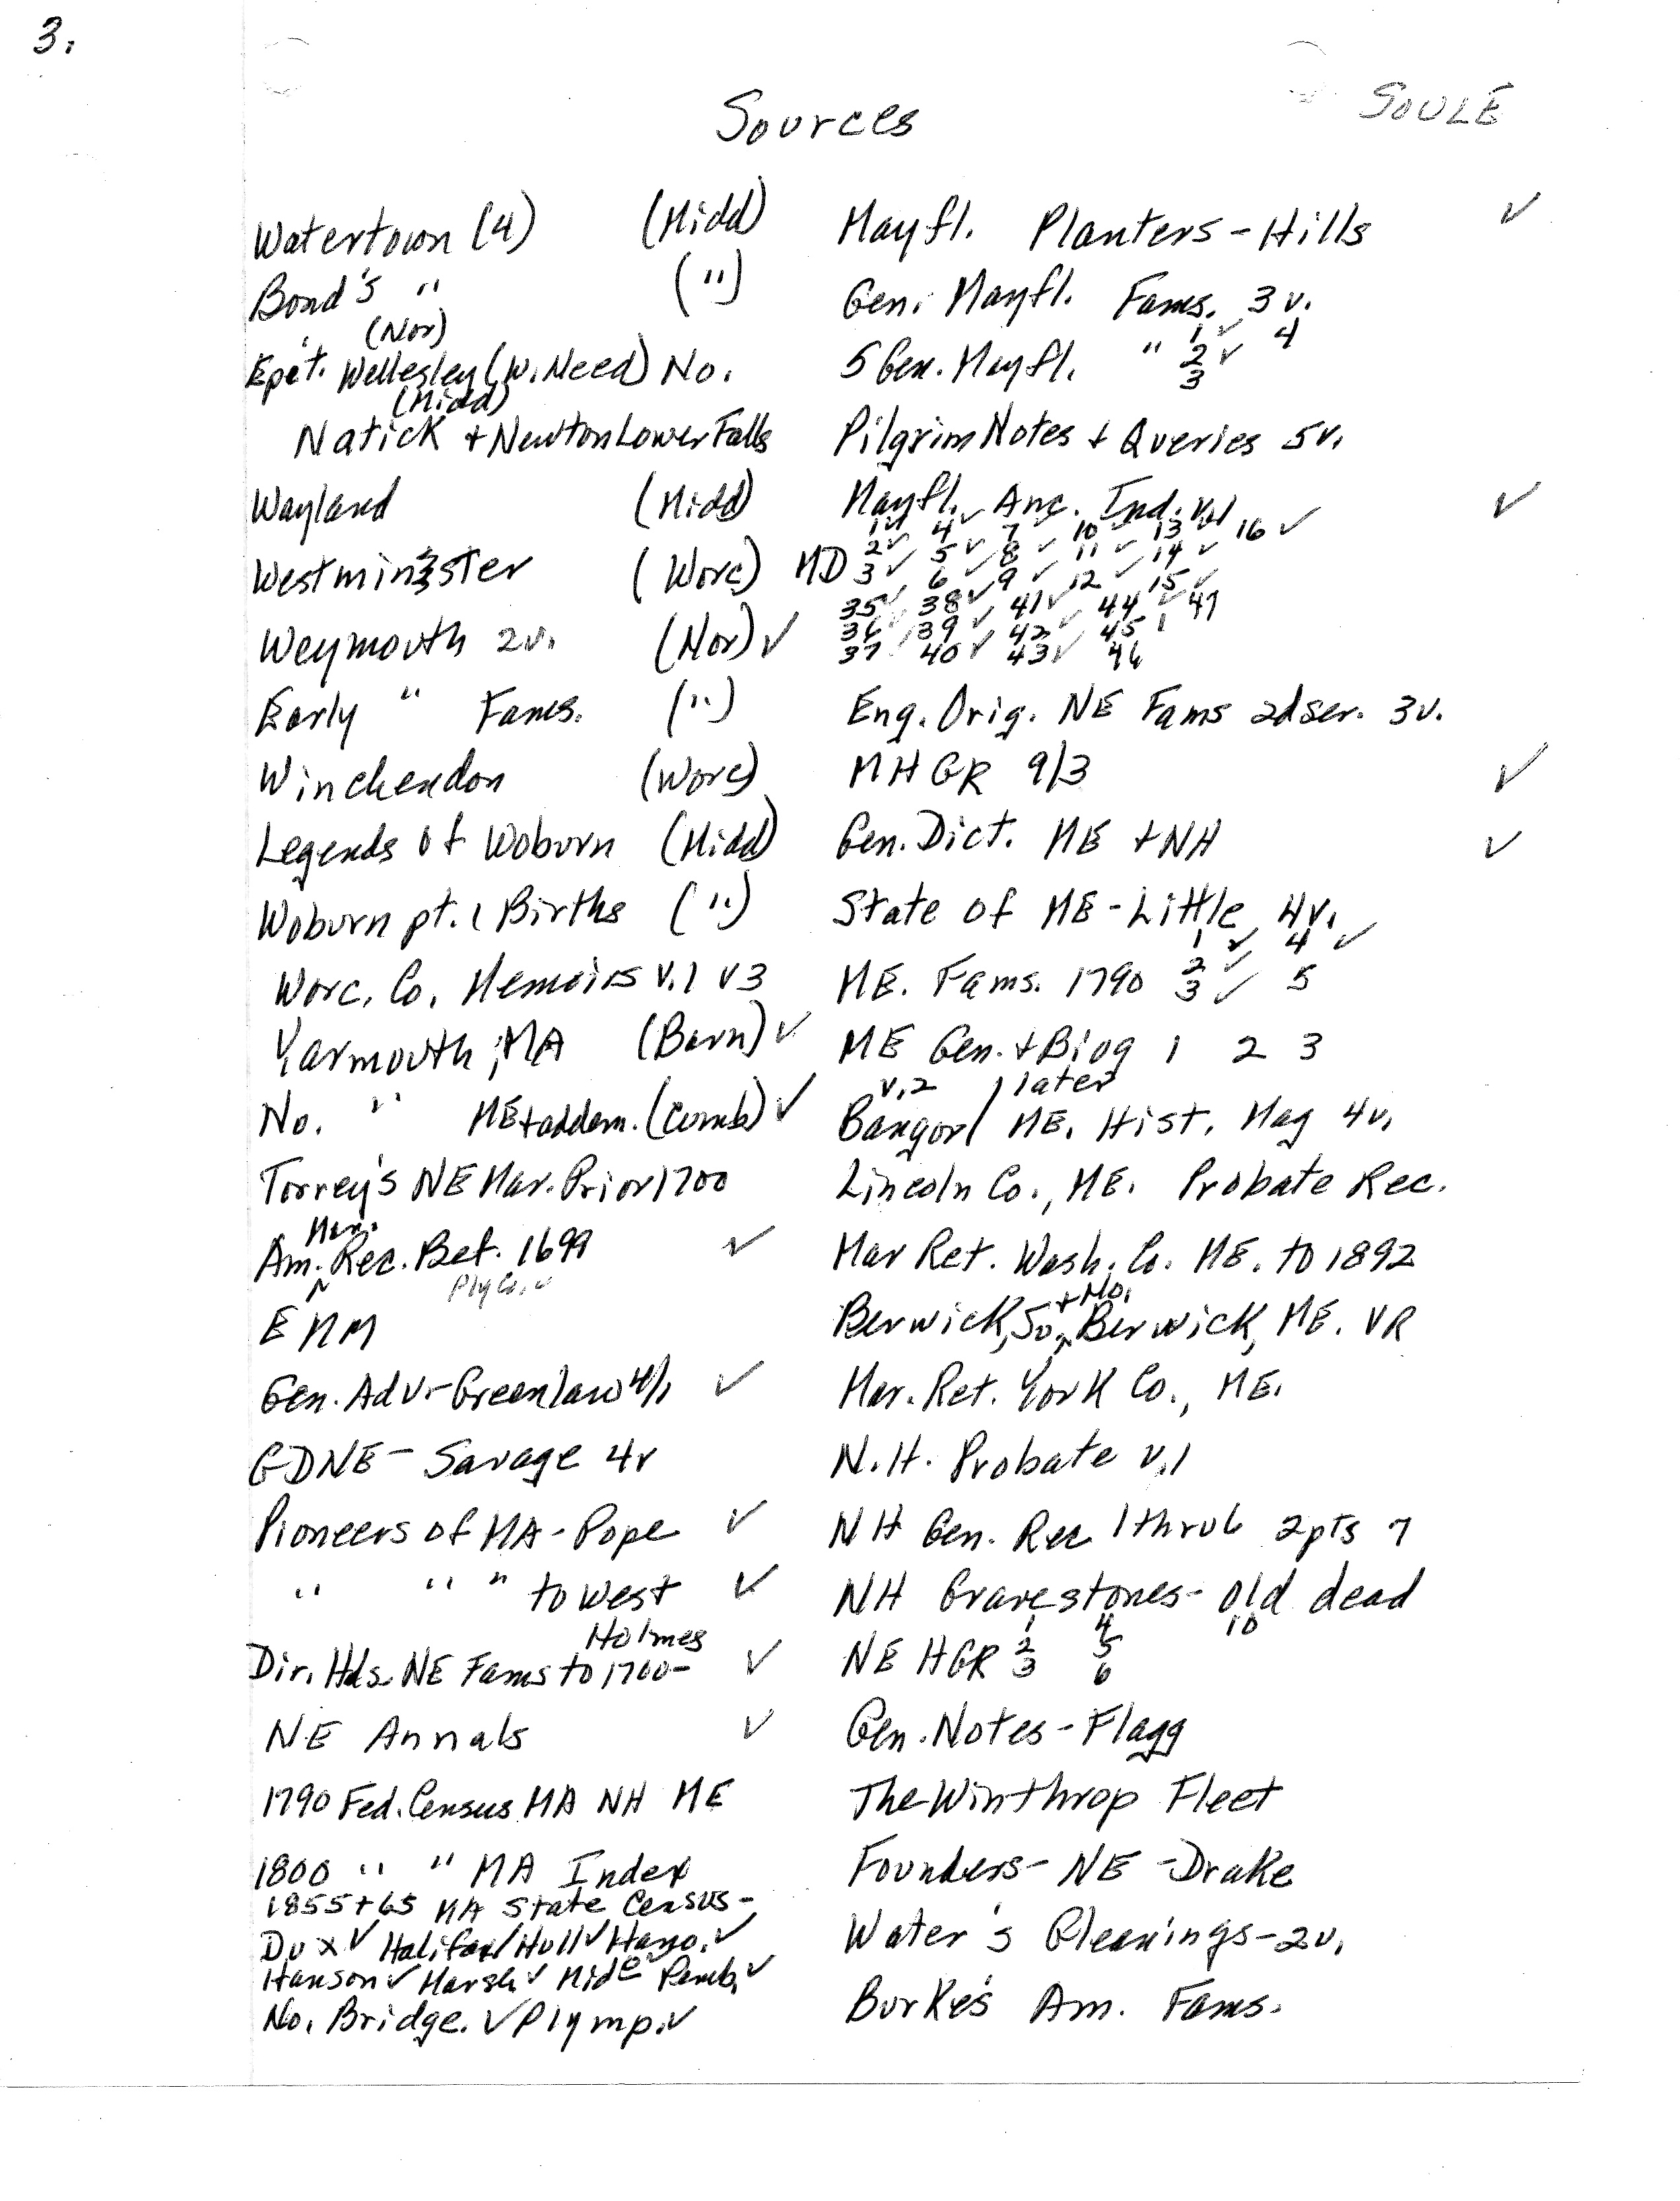 3.
Sources
SOULE
Watertown (4) (Midd)
Bond's " (")
(Nor)
Epit. Wellesley (W. Need) No.
(Midd)
Natick + Newton Lower Falls
Wayland (Midd)
Westminster (Worc)
Weymouth 2v. (Nor) ✓
Early " Fams. (")
Winchendon (Worc)
Legends of Woburn (Midd)
Woburn pt. 1 Births (")
Worc. Co. Memoirs v.1 v3
Yarmouth, MA (Barn) ✓
No. " ME + addem. (Cumb) ✓
Torrey's NE Mar. Prior 1700
Mar.
Am. Rec. Bef. 1699 ✓
Ply Co. ✓
ENM
Gen. Adv - Greenlaw 4/1 ✓
GDNE - Savage 4v
Pioneers of MA - Pope ✓
" " " to West ✓
Holmes
Dir. Hds. NE Fams to 1700 - ✓
NE Annals ✓
1790 Fed. Census MA NH ME
1800 " " MA Index
1855 + 65 MA State Census -
Dux ✓ Halifax ✓ Hull ✓ Hano. ✓
Hanson ✓ Marsh ✓ Mid ✓ Pemb. ✓
No. Bridge. ✓ Plymp. ✓
Mayfl. Planters - Hills ✓
Gen. Mayfl. Fams. 3 v.
1 ✓ 4
5 Gen. Mayfl. " 2 ✓
3
Pilgrim Notes + Queries 5v.
Mayfl. Anc. Ind. Vol ✓
1 ✓ 4 ✓ 7 ✓ 10 ✓ 13 ✓ 16 ✓
MD 2 ✓ 5 ✓ 8 ✓ 11 ✓ 14 ✓
3 ✓ 6 ✓ 9 ✓ 12 ✓ 15 ✓
35 ✓ 38 ✓ 41 ✓ 44 ✓ 47
36 39 ✓ 42 ✓ 45
37 40 ✓ 43 ✓ 46
Eng. Orig. NE Fams 2d ser. 3v.
MHGR 9/3 ✓
Gen. Dict. ME + NH ✓
State of ME - Little 4v.
1 ✓ 4 ✓
ME. Fams. 1790 2 ✓
3 ✓ 5
ME Gen. + Biog 1 2 3
v. 2 / later
Bangor / ME. Hist. Mag 4v.
Lincoln Co., ME. Probate Rec.
Mar Ret. Wash. Co. ME. to 1892
+ No.
Berwick, So. Berwick, ME. VR
Mar. Ret. York Co., ME.
N.H. Probate v.1
NH Gen. Rec 1 thru 6 2pts 7
NH Gravestones - Old dead
1 4 10
NEHGR 2 5
3 6
Gen. Notes - Flagg
The Winthrop Fleet
Founders - NE - Drake
Water's Gleanings - 2v.
Burke's Am. Fams.